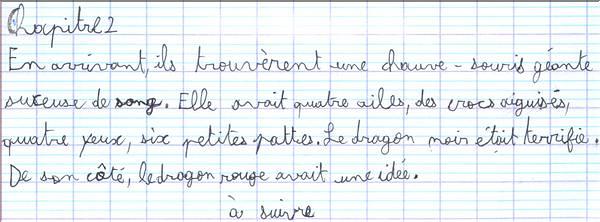 Chapitre 2
En arrivant, ils trouvèrent une chauve-souris géante
suceuse de sang. Elle avait quatre ailes, des crocs aiguisés,
quatre yeux, six petites pattes. Le dragon noir était terrifié.
De son côté, le dragon rouge avait une idée.
à suivre